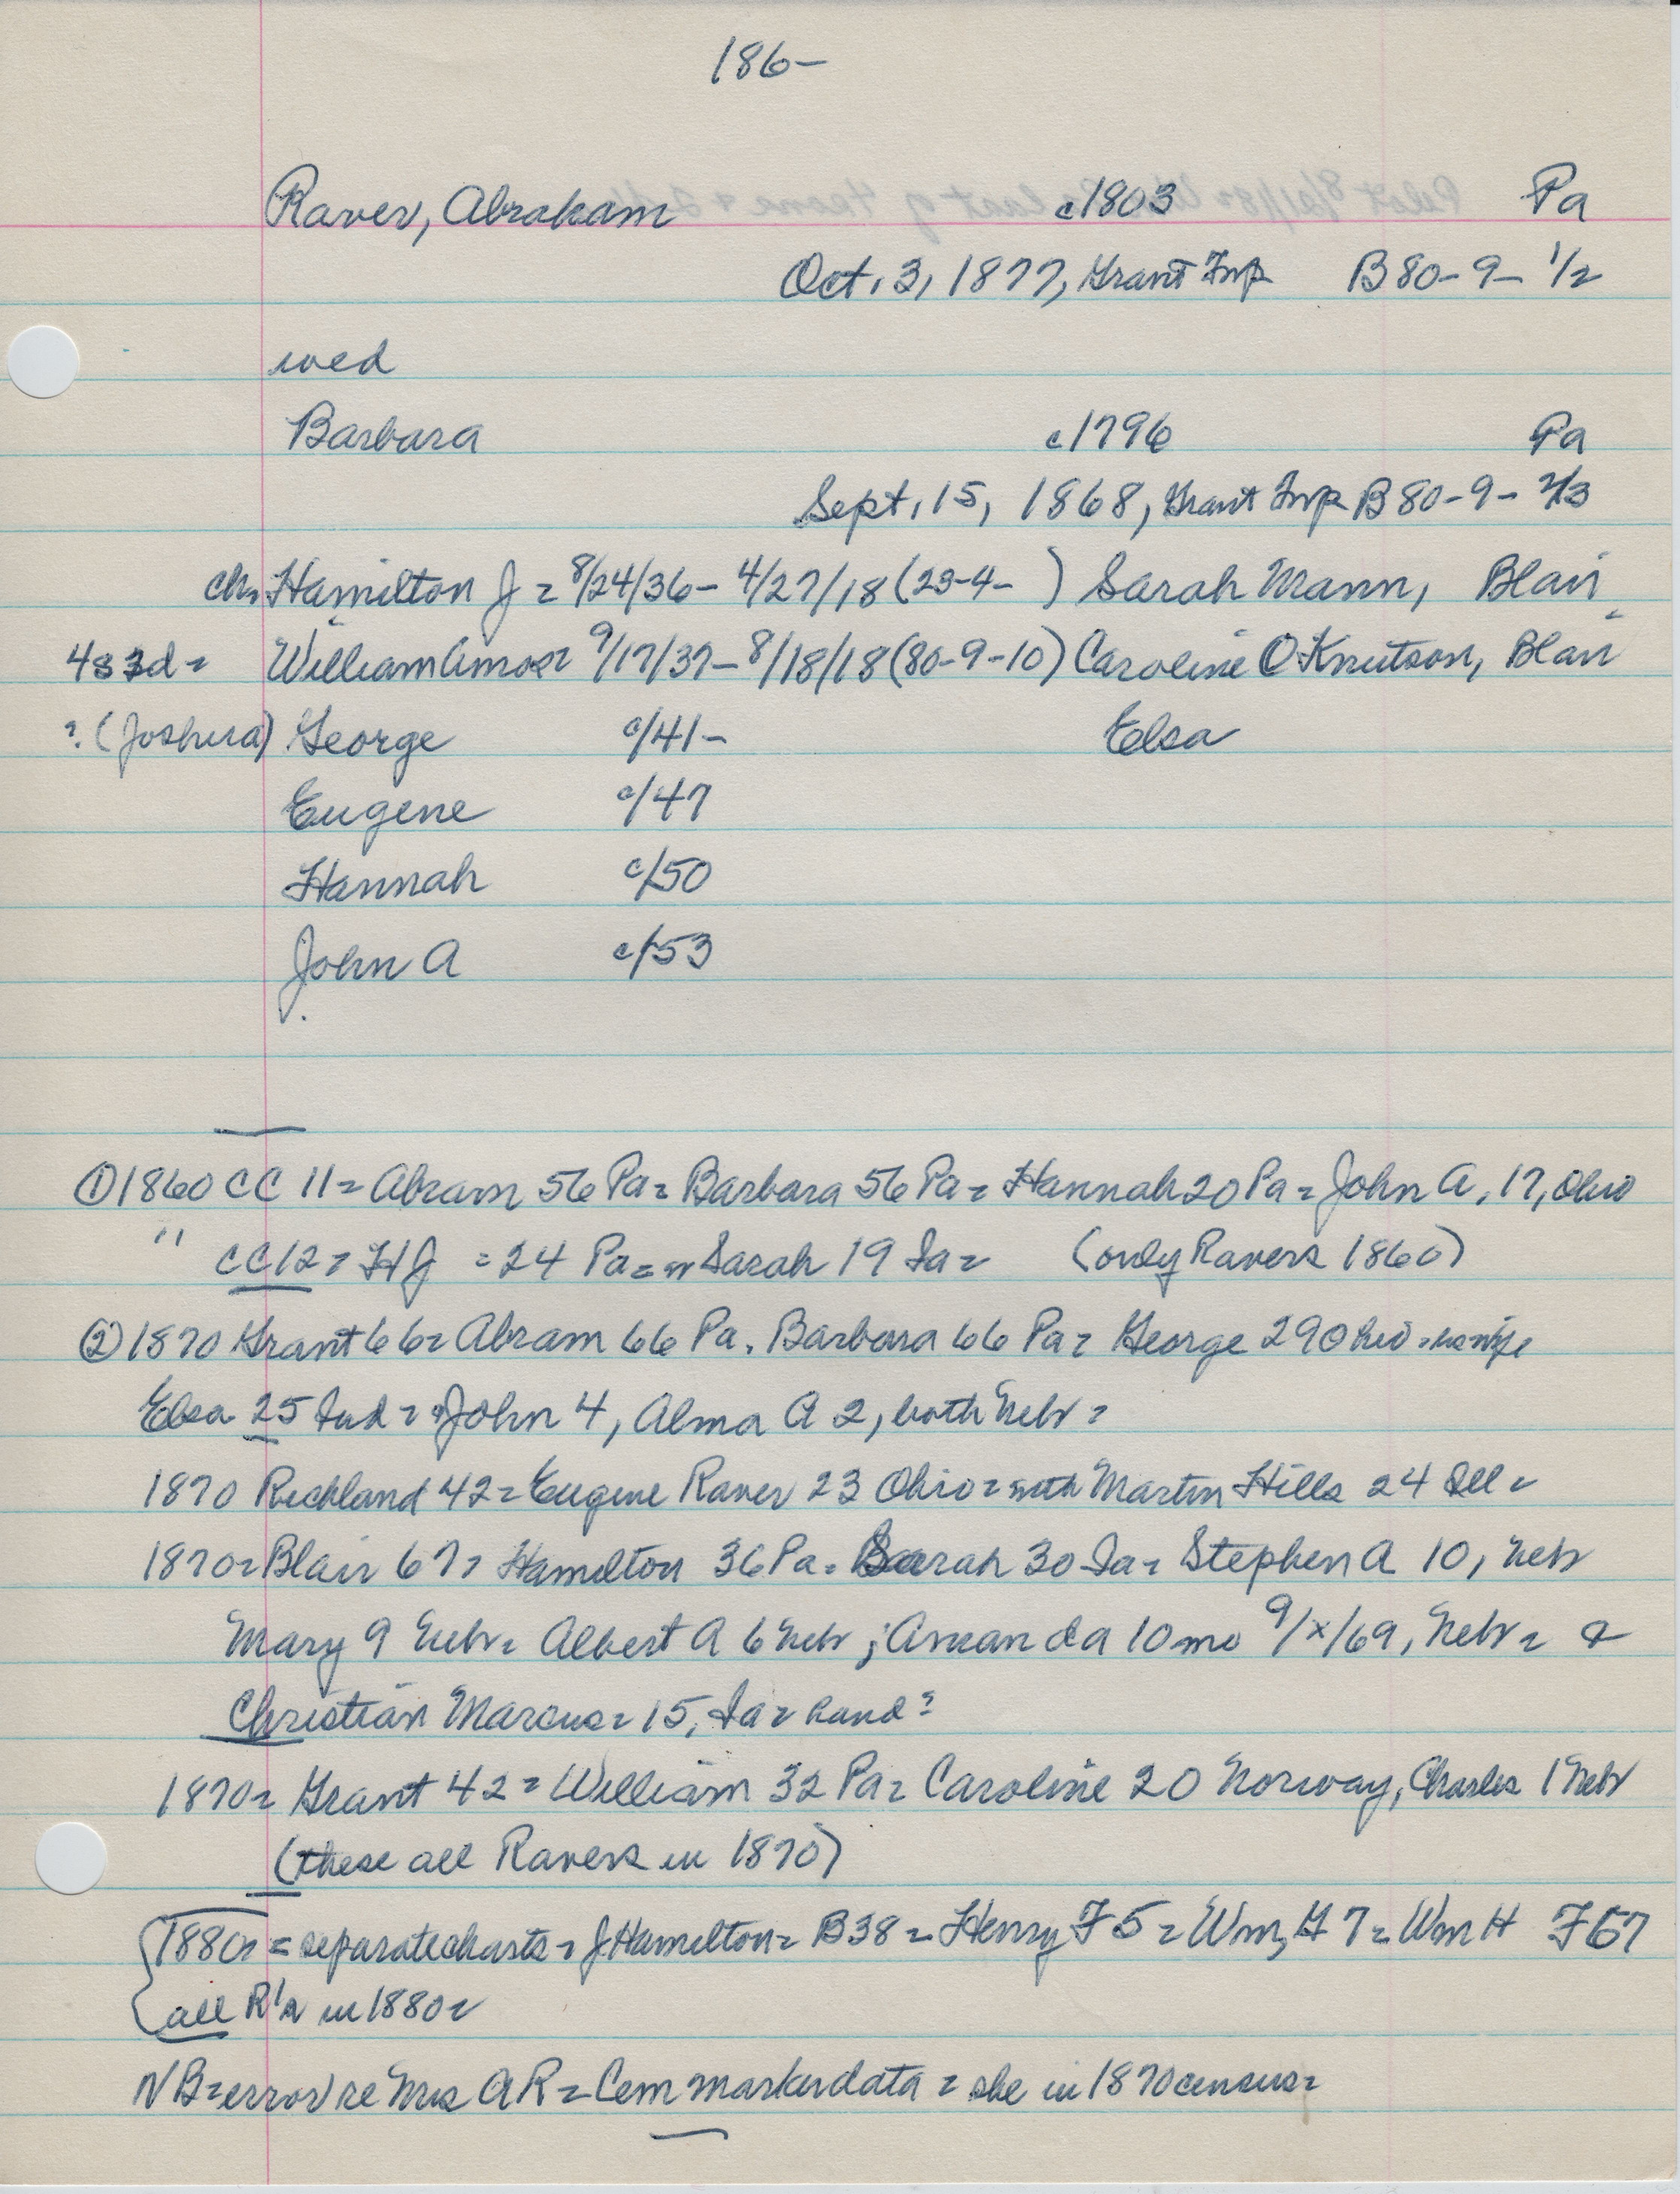 186-
Raver, Abraham c1803 Pa
Oct. 3, 1877, Grant Twp B 80-9-1/2
wed
Barbara c1796 Pa
Sept. 15, 1868, Grant Twp B 80-9-2/3
ch= Hamilton J = 8/24/36- 4/27/18 (23-4- ) Sarah Mann, Blair
4s 3d= William Amos= 9/17/37- 8/18/18 (80-9-10) Caroline O Knutson, Blair
?(Joshua) George c/41- Elsa
Eugene c/47
Hannah c/50
John A c/53
① 1860 CC 11= Abram 56 Pa= Barbara 56 Pa= Hannah 20 Pa= John A, 17, Ohio
" CC12= HJ = 24 Pa= w Sarah 19 Ia= (only Ravers 1860)
② 1870 Grant 66= Abram 66 Pa. Barbara 66 Pa= George 29 Ohio =
Elsa 25 Ind = John 4, Alma A 2, both Nebr=
1870 Richland 42= Eugene Raver 23 Ohio= with Martin Hills 24 Ill=
1870= Blair 67= Hamilton 36 Pa= Sarah 30 Ia= Stephen A 10, Nebr
Mary 9 Nebr= Albert A 6 Nebr; Amanda 10 mo 9/x/69, Nebr= &
Christian Marcus= 15, Ia= hand?
1870= Grant 42= William 32 Pa= Caroline 20 Norway, Charles 1 Nebr
(these all Ravers in 1870)
1880= separate charts= J Hamilton= B38= Henry F 5= Wm, H 7= Wm H F67
all R's in 1880=
NB= error re Mrs AR= Cem marker data= she in 1870 census=